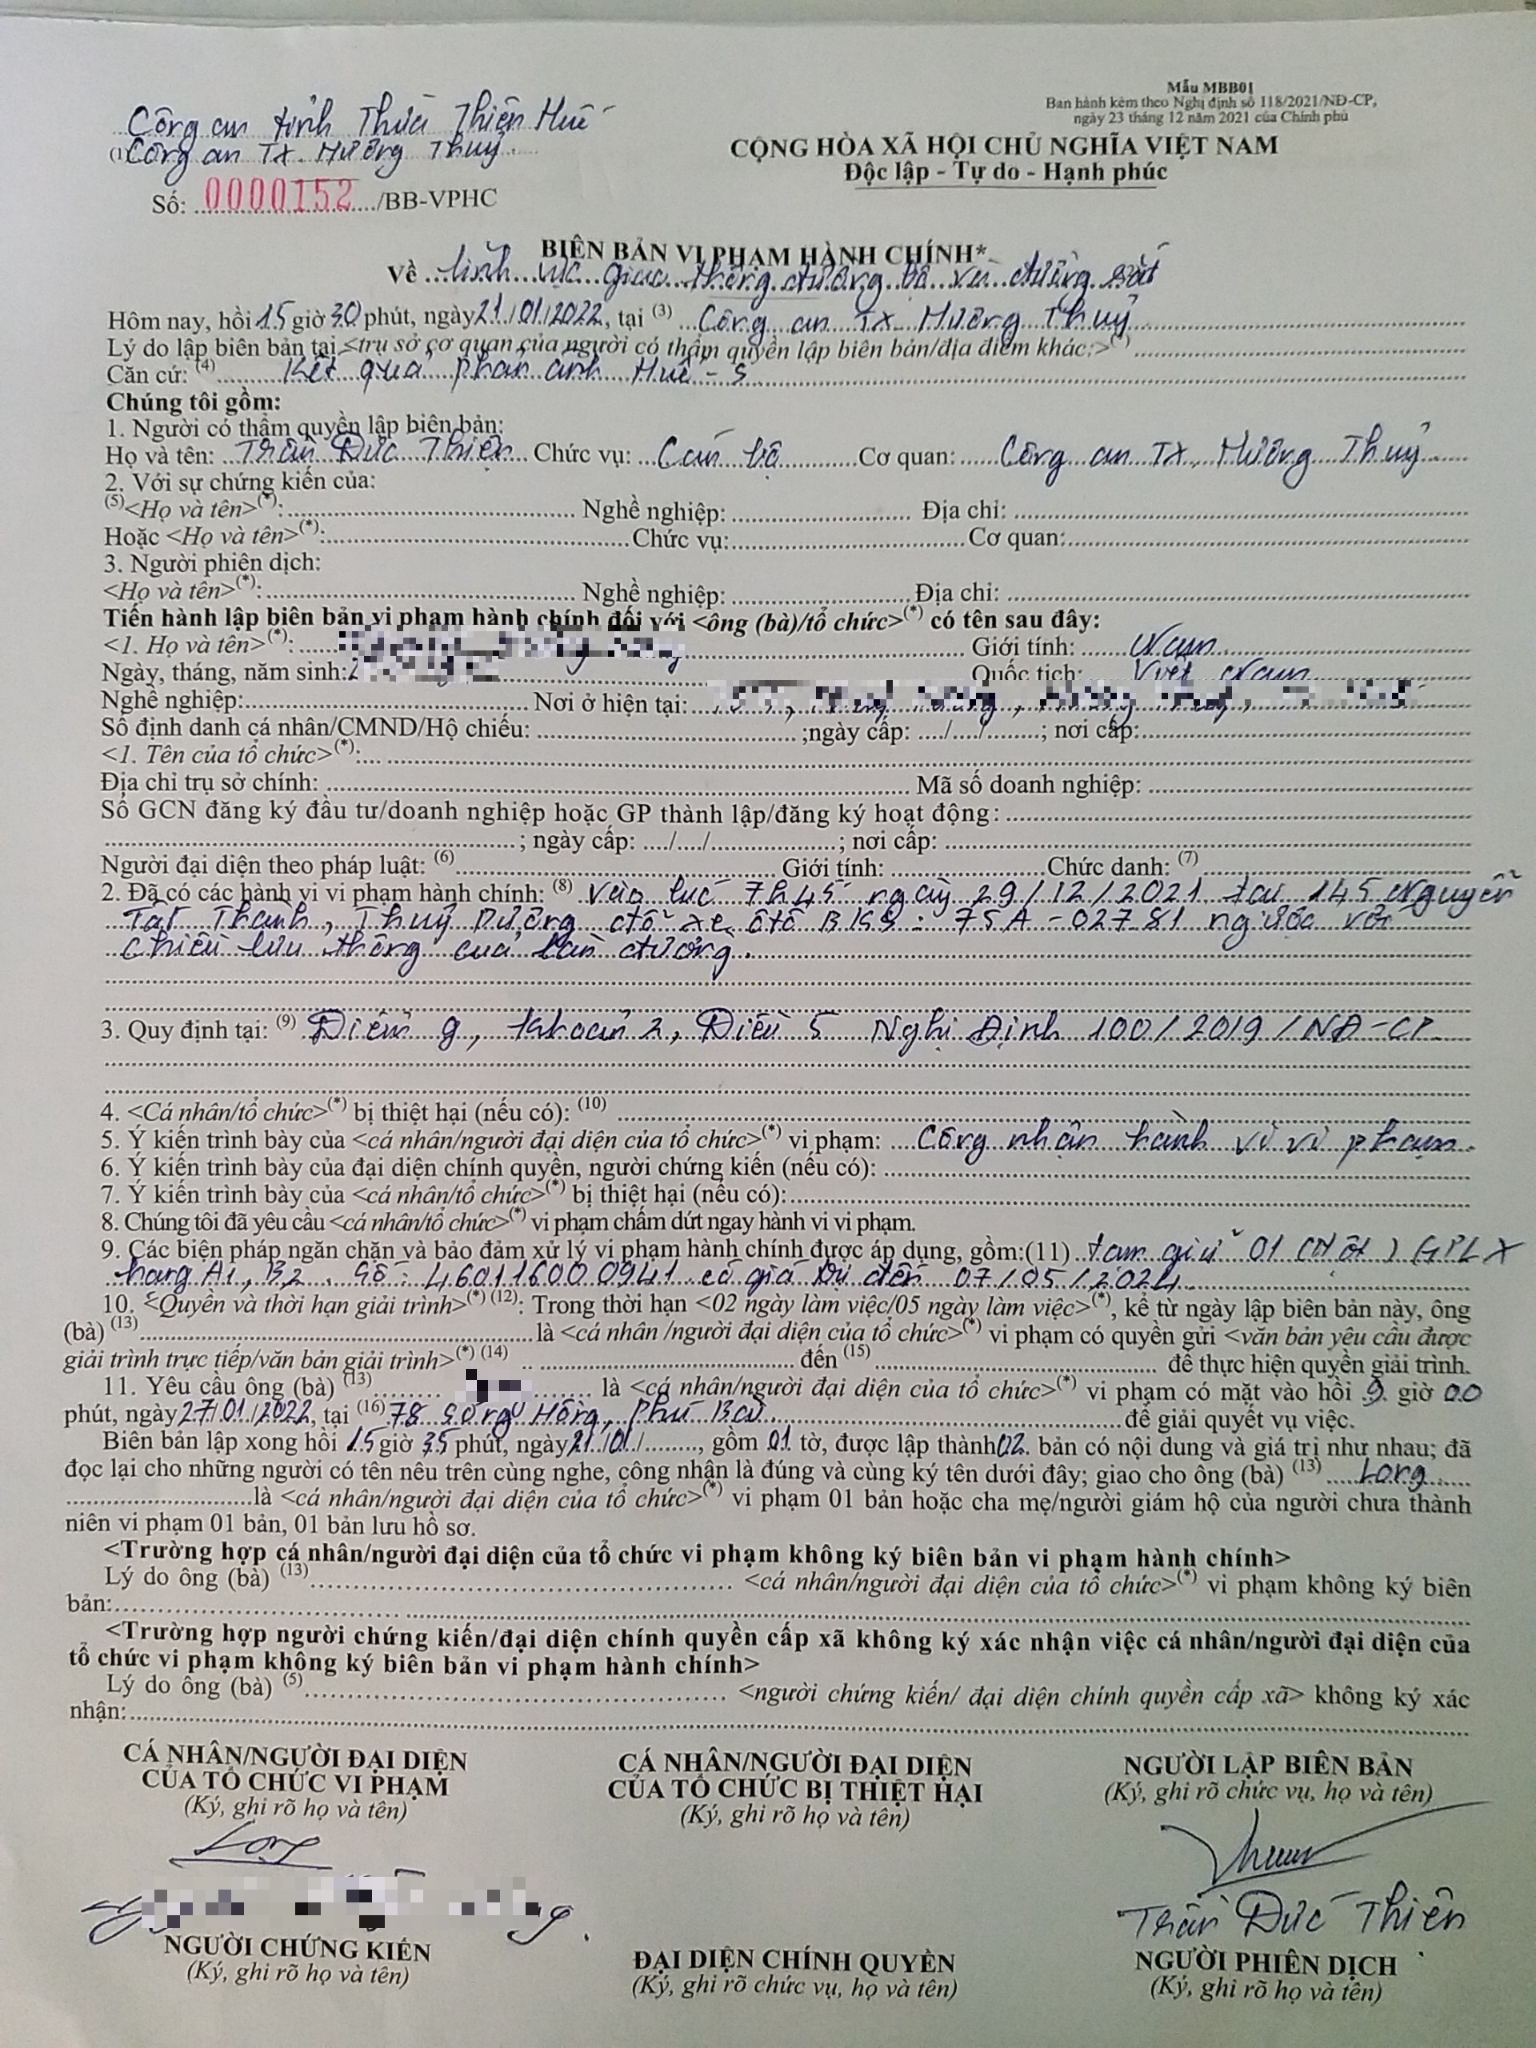 Mẫu MBB01
Ban hành kèm theo Nghị định số 118/2021/NĐ-CP,
ngày 23 tháng 12 năm 2021 của Chính phủ
Công an tỉnh Thừa Thiên Huế
(1) Công an TX. Hương Thuỷ
CỘNG HÒA XÃ HỘI CHỦ NGHĨA VIỆT NAM
Độc lập - Tự do - Hạnh phúc
Số: 0000152 /BB-VPHC
BIÊN BẢN VI PHẠM HÀNH CHÍNH*
Về lĩnh vực giao thông đường bộ và đường sắt
Hôm nay, hồi 15 giờ 30 phút, ngày 21/01/2022, tại (3) Công an TX Hương Thuỷ
Lý do lập biên bản tại <trụ sở cơ quan của người có thẩm quyền lập biên bản/địa điểm khác:>(*)
Căn cứ: (4) Kết quả phản ánh Huế - S
Chúng tôi gồm:
1. Người có thẩm quyền lập biên bản:
Họ và tên: Trần Đức Thiện Chức vụ: Cán bộ Cơ quan: Công an TX. Hương Thuỷ
2. Với sự chứng kiến của:
(5)<Họ và tên>(*): Nghề nghiệp: Địa chỉ:
Hoặc <Họ và tên>(*): Chức vụ: Cơ quan:
3. Người phiên dịch:
<Họ và tên>(*): Nghề nghiệp: Địa chỉ:
Tiến hành lập biên bản vi phạm hành chính đối với <ông (bà)/tổ chức>(*) có tên sau đây:
<1. Họ và tên>(*): Giới tính: Nam
Ngày, tháng, năm sinh: Quốc tịch: Việt Nam
Nghề nghiệp: Nơi ở hiện tại:
Số định danh cá nhân/CMND/Hộ chiếu: ;ngày cấp: ..../..../........; nơi cấp:
<1. Tên của tổ chức>(*):
Địa chỉ trụ sở chính: Mã số doanh nghiệp:
Số GCN đăng ký đầu tư/doanh nghiệp hoặc GP thành lập/đăng ký hoạt động:
; ngày cấp: ..../..../........; nơi cấp:
Người đại diện theo pháp luật: (6) Giới tính: Chức danh: (7)
2. Đã có các hành vi vi phạm hành chính: (8) Vào lúc 7h45 ngày 29/12/2021 tại 145 Nguyễn
Tất Thành, Thuỷ Dương đỗ xe ôtô BKS: 75A-02781 ngược với
chiều lưu thông của làn đường.
3. Quy định tại: (9) Điểm g, khoản 2, Điều 5 Nghị Định 100/2019/NĐ-CP
4. <Cá nhân/tổ chức>(*) bị thiệt hại (nếu có): (10)
5. Ý kiến trình bày của <cá nhân/người đại diện của tổ chức>(*) vi phạm: Công nhận hành vi vi phạm.
6. Ý kiến trình bày của đại diện chính quyền, người chứng kiến (nếu có):
7. Ý kiến trình bày của <cá nhân/tổ chức>(*) bị thiệt hại (nếu có):
8. Chúng tôi đã yêu cầu <cá nhân/tổ chức>(*) vi phạm chấm dứt ngay hành vi vi phạm.
9. Các biện pháp ngăn chặn và bảo đảm xử lý vi phạm hành chính được áp dụng, gồm:(11) tạm giữ 01 (Một) GPLX
hạng A1, B2. Số: 460116000941 có giá trị đến 07/05/2024
10. <Quyền và thời hạn giải trình>(*) (12): Trong thời hạn <02 ngày làm việc/05 ngày làm việc>(*), kể từ ngày lập biên bản này, ông
(bà) (13) là <cá nhân /người đại diện của tổ chức>(*) vi phạm có quyền gửi <văn bản yêu cầu được
giải trình trực tiếp/văn bản giải trình>(*) (14) đến (15) để thực hiện quyền giải trình.
11. Yêu cầu ông (bà) (13) là <cá nhân/người đại diện của tổ chức>(*) vi phạm có mặt vào hồi 9 giờ 00
phút, ngày 27/01/2022, tại (16) 78 Sóng Hồng, Phú Bài để giải quyết vụ việc.
Biên bản lập xong hồi 15 giờ 35 phút, ngày 21/01/........, gồm 01 tờ, được lập thành 02 bản có nội dung và giá trị như nhau; đã
đọc lại cho những người có tên nêu trên cùng nghe, công nhận là đúng và cùng ký tên dưới đây; giao cho ông (bà) (13) Long
là <cá nhân/người đại diện của tổ chức>(*) vi phạm 01 bản hoặc cha mẹ/người giám hộ của người chưa thành
niên vi phạm 01 bản, 01 bản lưu hồ sơ.
<Trường hợp cá nhân/người đại diện của tổ chức vi phạm không ký biên bản vi phạm hành chính>
Lý do ông (bà) (13) <cá nhân/người đại diện của tổ chức>(*) vi phạm không ký biên
bản:
<Trường hợp người chứng kiến/đại diện chính quyền cấp xã không ký xác nhận việc cá nhân/người đại diện của
tổ chức vi phạm không ký biên bản vi phạm hành chính>
Lý do ông (bà) (5) <người chứng kiến/ đại diện chính quyền cấp xã> không ký xác
nhận:
CÁ NHÂN/NGƯỜI ĐẠI DIỆN
CỦA TỔ CHỨC VI PHẠM
(Ký, ghi rõ họ và tên)
Long
CÁ NHÂN/NGƯỜI ĐẠI DIỆN
CỦA TỔ CHỨC BỊ THIỆT HẠI
(Ký, ghi rõ họ và tên)
NGƯỜI LẬP BIÊN BẢN
(Ký, ghi rõ chức vụ, họ và tên)
Trần Đức Thiện
NGƯỜI CHỨNG KIẾN
(Ký, ghi rõ họ và tên)
ĐẠI DIỆN CHÍNH QUYỀN
(Ký, ghi rõ chức vụ, họ và tên)
NGƯỜI PHIÊN DỊCH
(Ký, ghi rõ họ và tên)